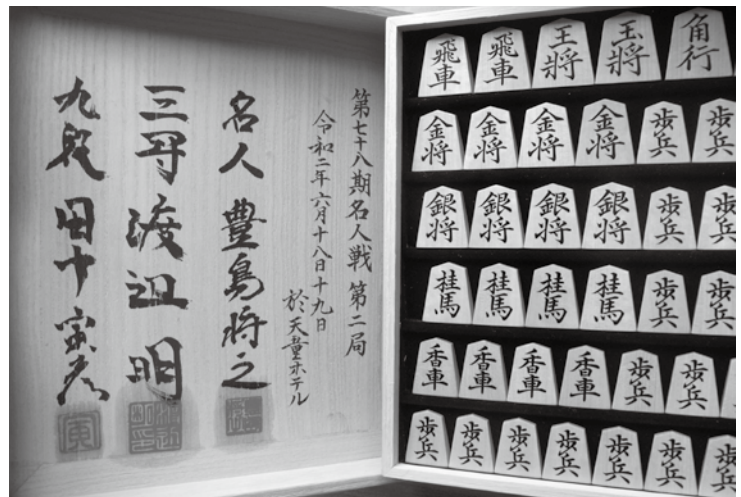 第七十八期名人戦 第二局
令和二年六月十八日十九日
於天童ホテル
名人 豊島将之
三冠 渡辺 明
九段 田中寅彦
飛車 飛車 王将 玉将 角行
金将 金将 金将 金将 歩兵 歩兵
銀将 銀将 銀将 銀将 歩兵 歩兵
桂馬 桂馬 桂馬 桂馬 歩兵 歩兵
香車 香車 香車 香車 歩兵 歩兵
歩兵 歩兵 歩兵 歩兵 歩兵 歩兵 歩兵